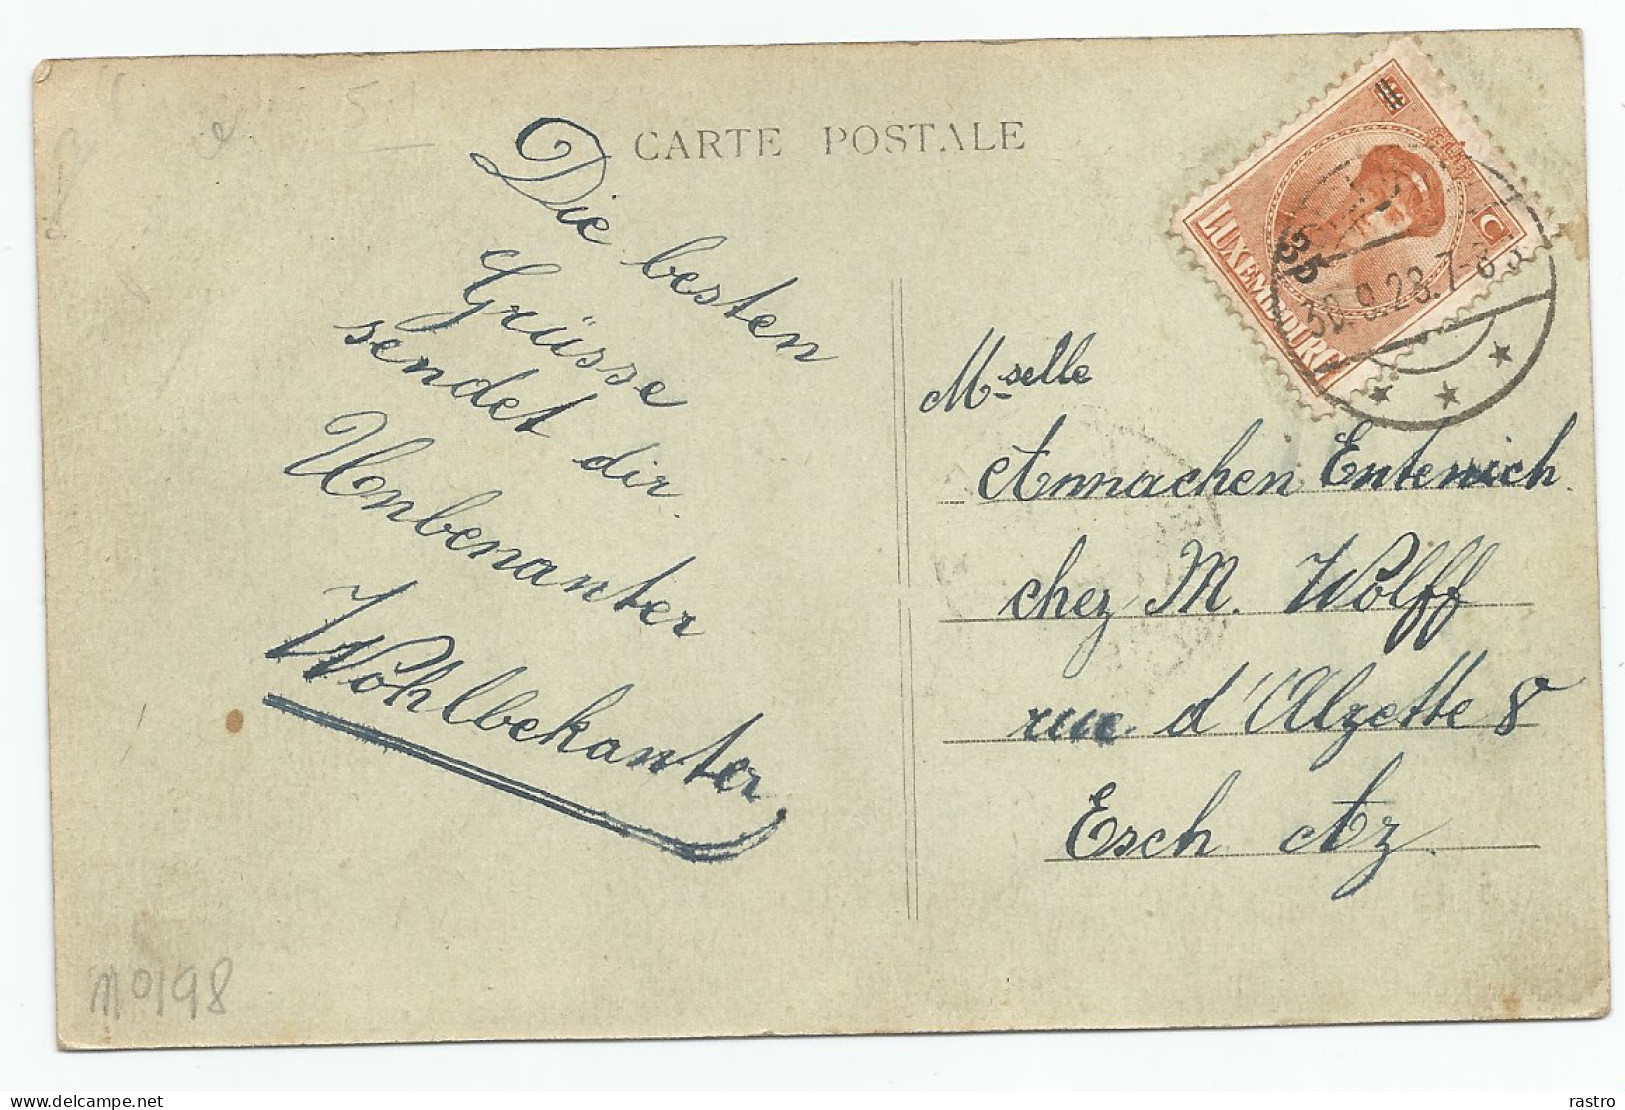 CARTE POSTALE
Die besten
Grüsse
sendet dir
Unbenanter
Wohlbekanter
LUXEMBOURG
35
C
30.9.28.7-8
Mselle
Annachen Entenich
chez M. Wolff
rue d'Alzette 8
Esch Az.
110198
rastro
Delcampe.net